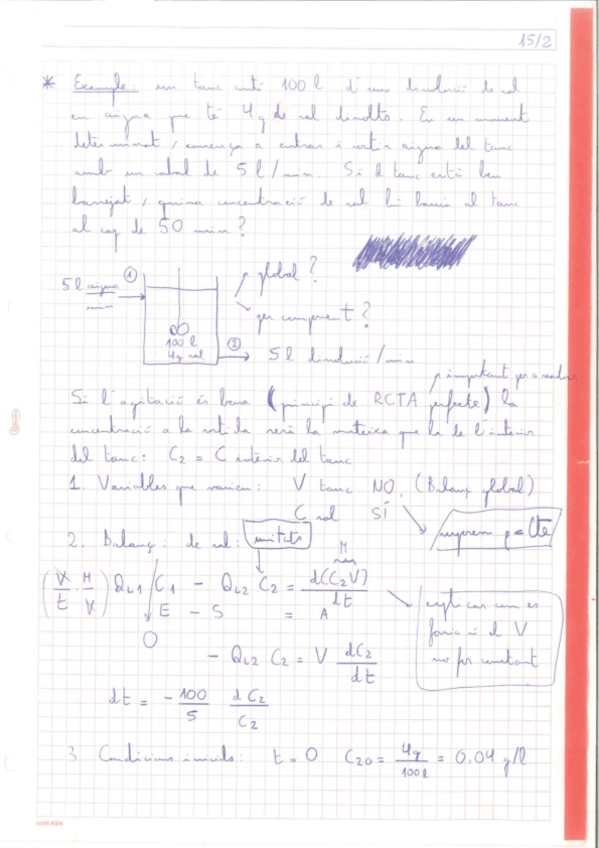 15/2
* Exemple: un tanc conté 100 l d'una dissolució de sal
en aigua que té 4 g de sal dissolta. En un moment
determinat, comença a entrar i sortir aigua del tanc
amb un cabal de 5 l/min. Si el tanc està ben
barrejat, quina concentració de sal hi haurà al tanc
al cap de 50 min?
global?
5 l aigua
min
1
per component?
100 l
4 g sal
2
5 l dissolució/min
important per a reactors
Si l'agitació és bona (principi de RCTA perfecte) la
concentració a la sortida serà la mateixa que la de l'interior
del tanc: C2 = C interior del tanc
1. Variables que varien: V tanc NO, (Balanç global)
C sal SÍ
suposem ρ = Cte
2. Balanç: de sal: unitats
M
(V/t · M/V) QL1 C1 - QL2 C2 = d(C2V)/dt
E - S = A
0
explicar com es
faria si el V
no fos constant
- QL2 C2 = V dC2/dt
dt = -100/5 dC2/C2
3. Condicions inicials: t = 0 C20 = 4g/100 l = 0.04 g/l